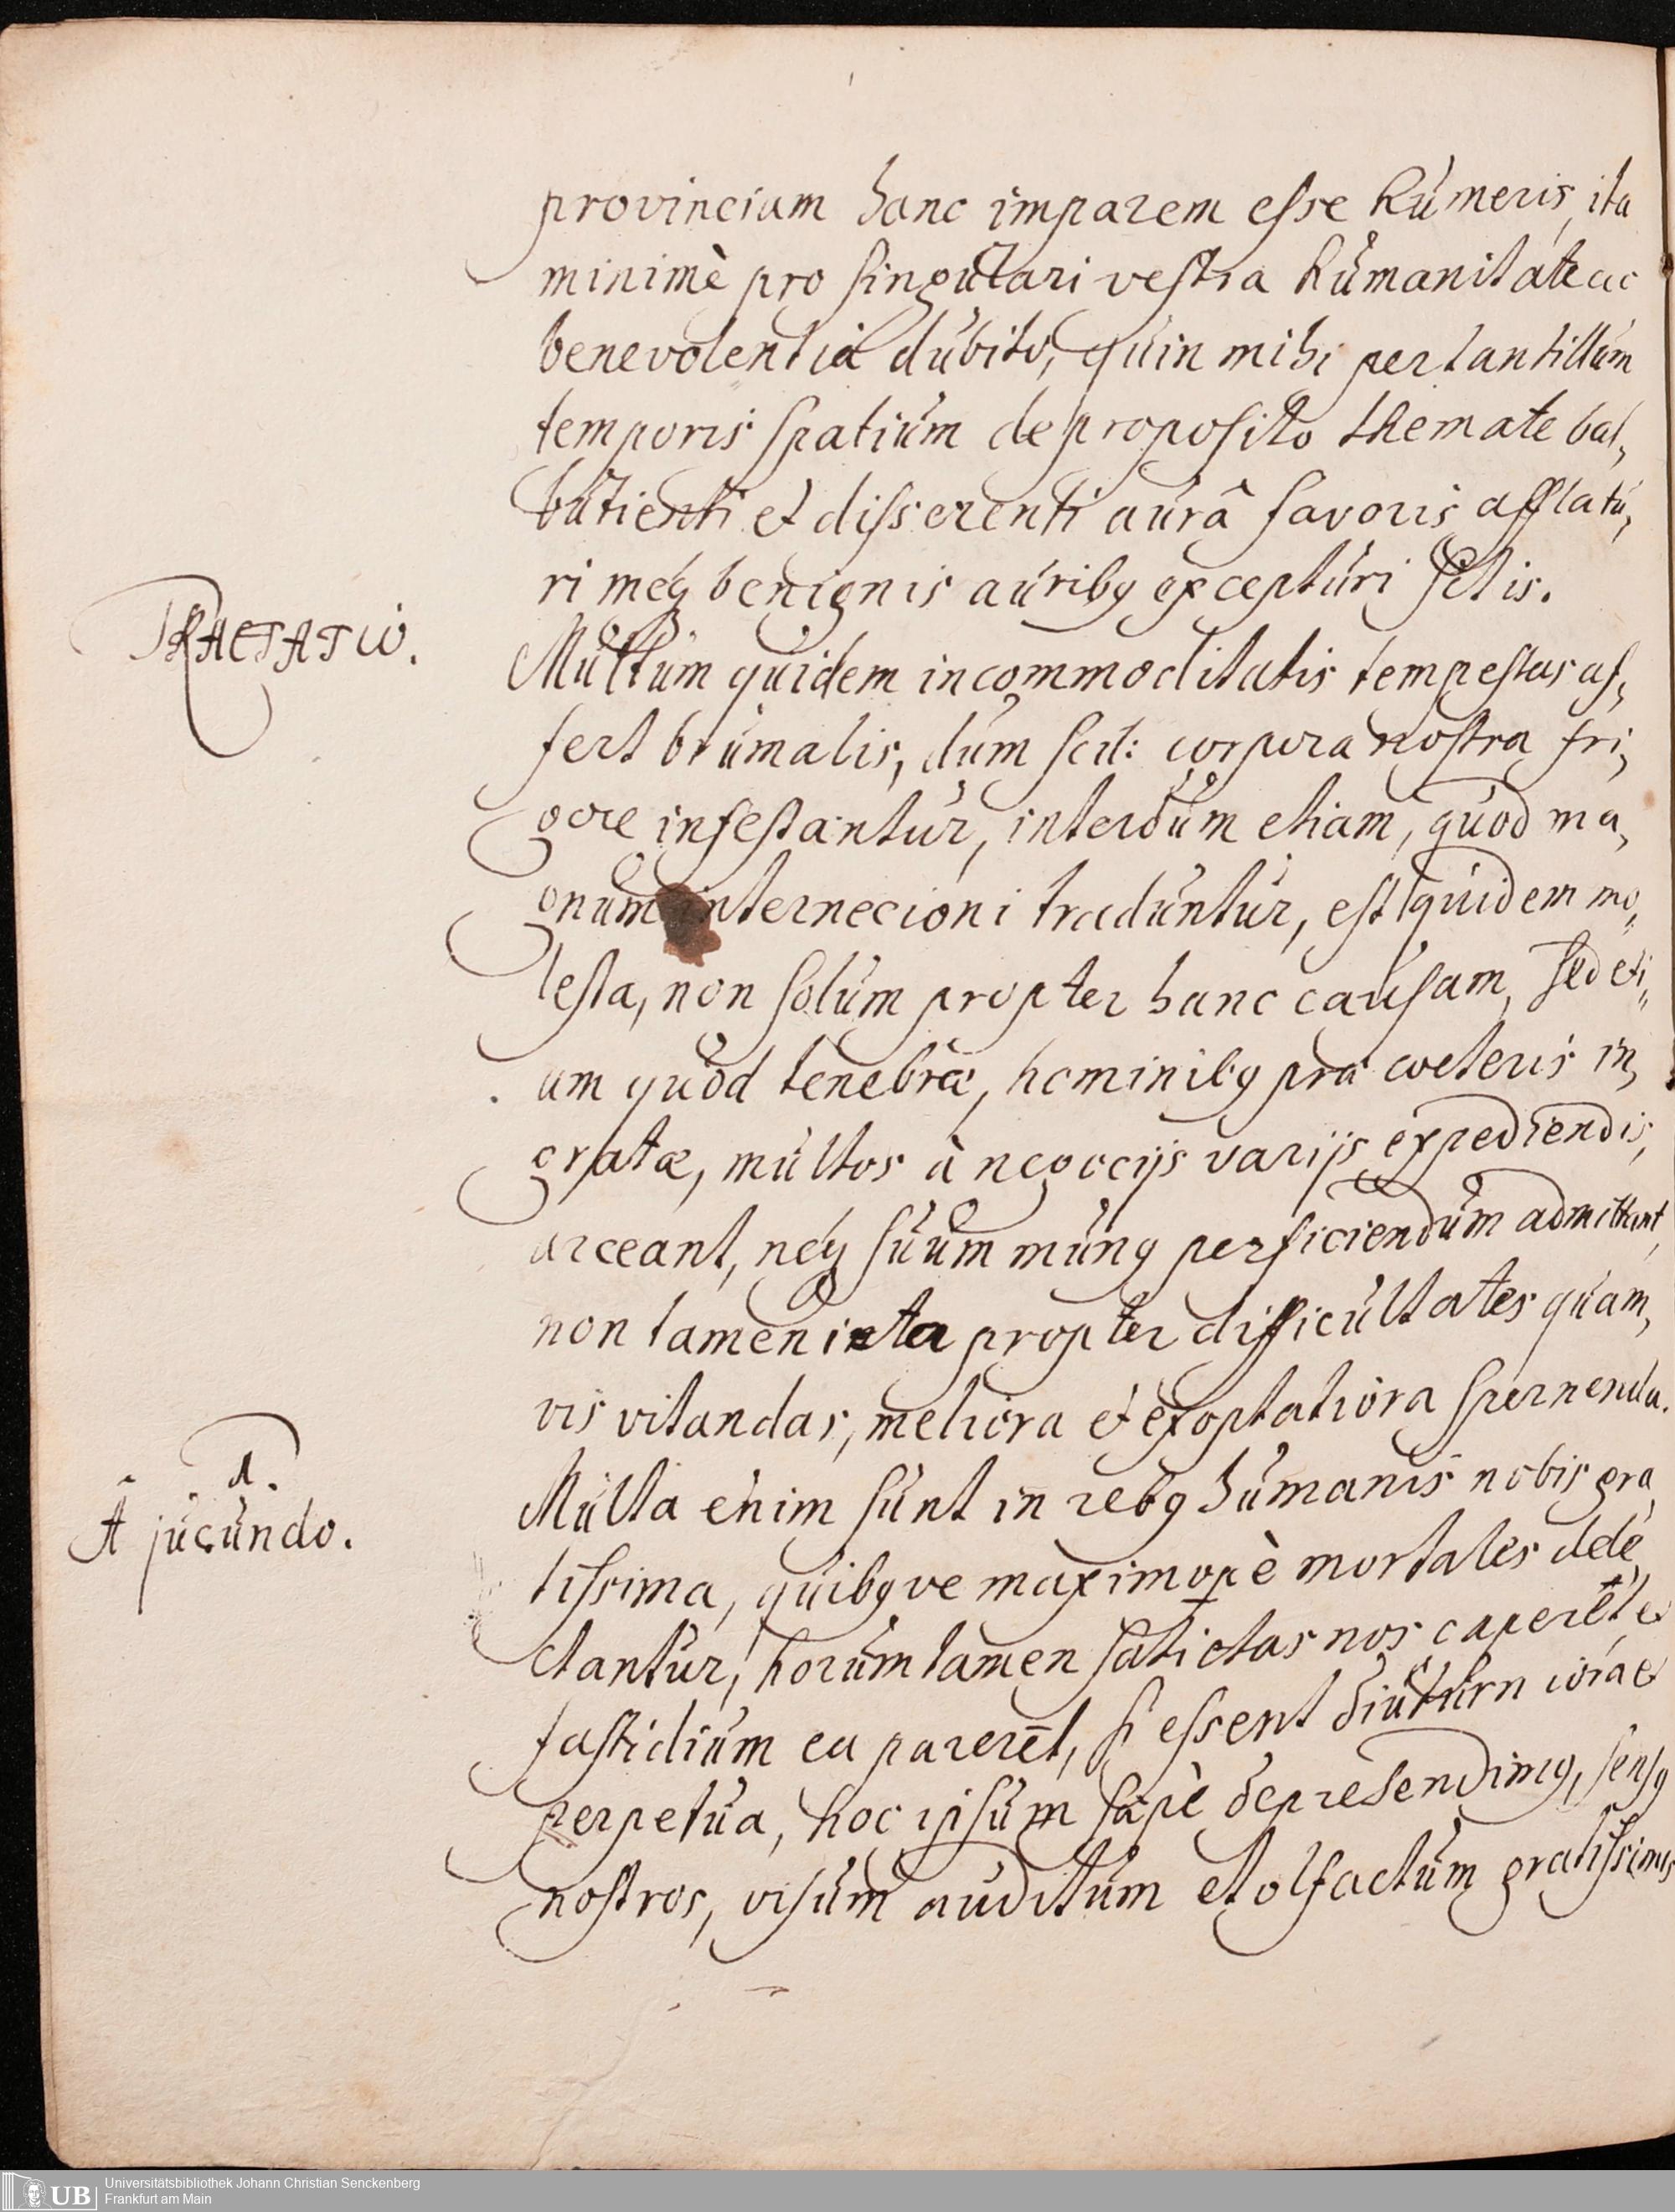 provinciam hanc imparem esse humeris, ita
minimè pro singulari vestra humanitate ac
benevolentia dubito, quin mihi per tantillum
temporis spatium de proposito themate bal,
butienti et disserenti aurâ favoris afflatu,
ri meq; benignis auribq excepturi sitis.
TRACTATIO.
Multum quidem incommoditatis tempestas af,
fert brumalis, dum scil: corpora nostra fri,
gore infestantur, interdum etiam, quod ma,
gnum internecioni traduntur, est quidem mo,,
lesta, non solum propter hanc causam, sed eti,,
am quòd tenebræ, hominibq præ coeteris in,
gratæ, multos à negocijs varijs expediendis,
arceant, neq; suum munq perficiendum admittunt,
non tamen ista propter difficultates quam,
vis vitandas, meliora et exoptatiora spernenda.
1.
A jucundo.
Multa enim sunt in rebq humanis nobis gra,
tissima, quibqve maximopè mortales dele,
ctantur, horum tamen satietas nos caperēt et
fastidium ea parerēt, si essent diuturniora et
perpetua, hoc ipsum sæpè deprehendimq, sensq
nostros, visum auditum et olfactum gratissimis
Universitätsbibliothek Johann Christian Senckenberg
Frankfurt am Main
UB